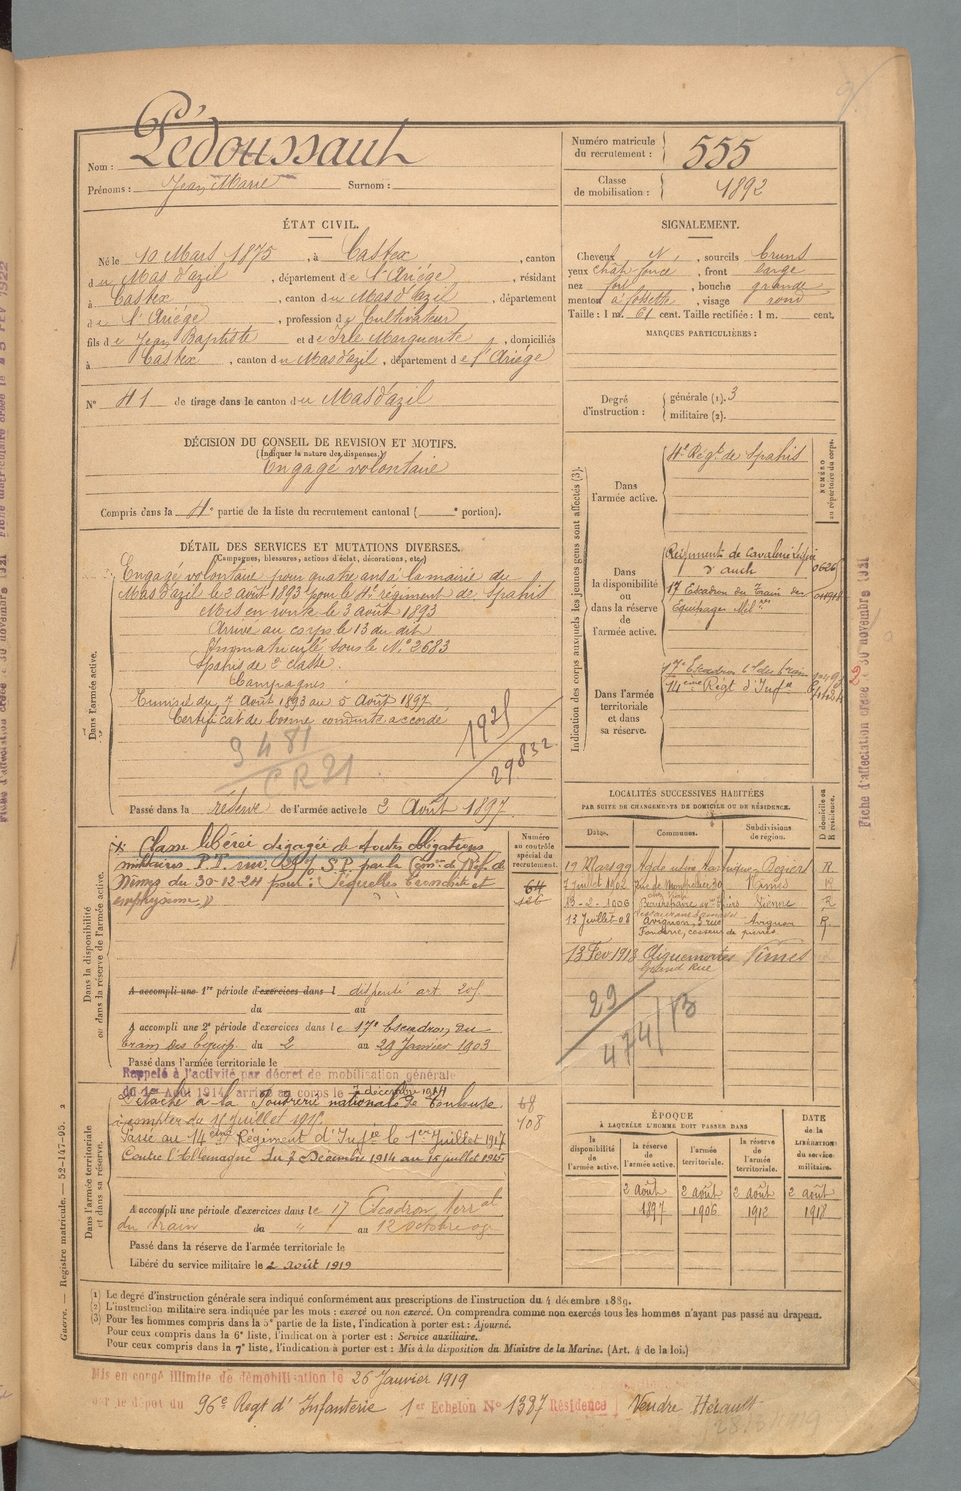 Nom : Pédoussaut
Prénoms : Jean Marie Surnom :
Numéro matricule du recrutement : 555
Classe de mobilisation : 1892
ÉTAT CIVIL.
Né le 10 Mars 1875, à Castex, canton
du Mas d'azil, département de l'Ariége, résidant
à Castex, canton du Mas d'azil, département
de l'Ariége, profession de Cultivateur
fils de Jean Baptiste et de Marguerite, domiciliés
à Castex, canton du Mas d'azil, département de l'Ariége
N° 41 de tirage dans le canton du Mas d'azil
SIGNALEMENT.
Cheveux N, sourcils bruns
yeux chât. foncé, front large
nez fort, bouche grande
menton à fossette, visage rond
Taille : 1 m. 61 cent. Taille rectifiée : 1 m. cent.
MARQUES PARTICULIÈRES :
Degré d'instruction : générale (1). 3
militaire (2).
DÉCISION DU CONSEIL DE REVISION ET MOTIFS.
(Indiquer la nature des dispenses.)
Engagé volontaire
Compris dans la 4e partie de la liste du recrutement cantonal ( e portion).
DÉTAIL DES SERVICES ET MUTATIONS DIVERSES.
(Campagnes, blessures, actions d'éclat, décorations, etc.)
Dans l'armée active.
Engagé volontaire pour quatre ans à la mairie du
Mas d'azil le 2 août 1893 pour le 4e régiment de Spahis
Mis en route le 3 août 1893
Arrivé au corps le 13 du dit
Immatriculé sous le N° 2683
Spahis de 2e classe.
Campagnes :
Tunisie du 7 Août 1893 au 5 Août 1897
Certificat de bonne conduite accordé
1925
29832
3481
CR 21
Passé dans la réserve de l'armée active le 2 Août 1897
Indication des corps auxquels les jeunes gens sont affectés (3).
NUMÉRO au répertoire du corps.
Dans l'armée active.
4e Régt de Spahis
Dans la disponibilité ou dans la réserve de l'armée active.
Régiment de Cavalerie légère
d'auch
17 Escadron du Train des
Equipages Milres
Dans l'armée territoriale et dans sa réserve.
17e Escadron tal du train
14ème Régt d'Infie
Dans la disponibilité ou dans la réserve de l'armée active.
Numéro au contrôle spécial du recrutement.
Classe libérée dégagée de toutes obligations
militaires. P.T. S.P. par la Comon de Réf. de
Nîmes du 30-12-24 pour : Séquelles bronchite et
emphysème
A accompli une 1re période d'exercices dans l dispensé art. 205
du au
A accompli une 2e période d'exercices dans le 17e Escadron du
train des équip. du 2 au 29 Janvier 1903
Passé dans l'armée territoriale le
Rappelé à l'activité par décret de mobilisation générale
du 1er Août 1914 arrivé au corps le 7 décembre 1914
Dans l'armée territoriale et dans sa réserve.
Détaché à la Poudrerie nationale de Toulouse
à compter du 15 juillet 1915.
Passé au 14ème Régiment d'Infie le 1er Juillet 1917
Contre l'Allemagne du 7 Décembre 1914 au 15 juillet 1915
68
108
A accompli une période d'exercices dans le 17 Escadron terral
du train du " au 12 octobre 09
Passé dans la réserve de l'armée territoriale le
Libéré du service militaire le 2 août 1919
LOCALITÉS SUCCESSIVES HABITÉES
PAR SUITE DE CHANGEMENTS DE DOMICILE OU DE RÉSIDENCE.
Dates. Communes. Subdivisions de région. D domicile ou R résidence.
19 Mars 99 Agde Béziers R.
7 juillet 1902 Rue de Montpellier 30 Nîmes R
18-2-1906 Beaurepaire Vienne R
13 Juillet-08 Avignon, rue Avignon R.
Fonderie, casseur de pierres
13 Fev 1913 Aiguemortes Nîmes
Grand Rue
29
474/13
ÉPOQUE
À LAQUELLE L'HOMME DOIT PASSER DANS
la disponibilité de l'armée active. la réserve de l'armée active. l'armée territoriale. la réserve de l'armée territoriale. DATE de la LIBÉRATION du service militaire.
2 août 1897 2 août 1906 2 août 1912 2 août 1918
(1) Le degré d'instruction générale sera indiqué conformément aux prescriptions de l'instruction du 4 décembre 1889.
(2) L'instruction militaire sera indiquée par les mots : exercé ou non exercé. On comprendra comme non exercés tous les hommes n'ayant pas passé au drapeau.
(3) Pour les hommes compris dans la 5e partie de la liste, l'indication à porter est : Ajourné.
Pour ceux compris dans la 6e liste, l'indication à porter est : Service auxiliaire.
Pour ceux compris dans la 7e liste, l'indication à porter est : Mis à la disposition du Ministre de la Marine. (Art. 4 de la loi.)
Mis en congé illimité de démobilisation le 26 Janvier 1919
par le dépôt du 96e Regt d'Infanterie 1er Echelon N° 1387 Résidence Vendre Hérault
Guerre. — Registre matricule. — 52-147-95.
Fiche d'affectation créée le 30 novembre 1921